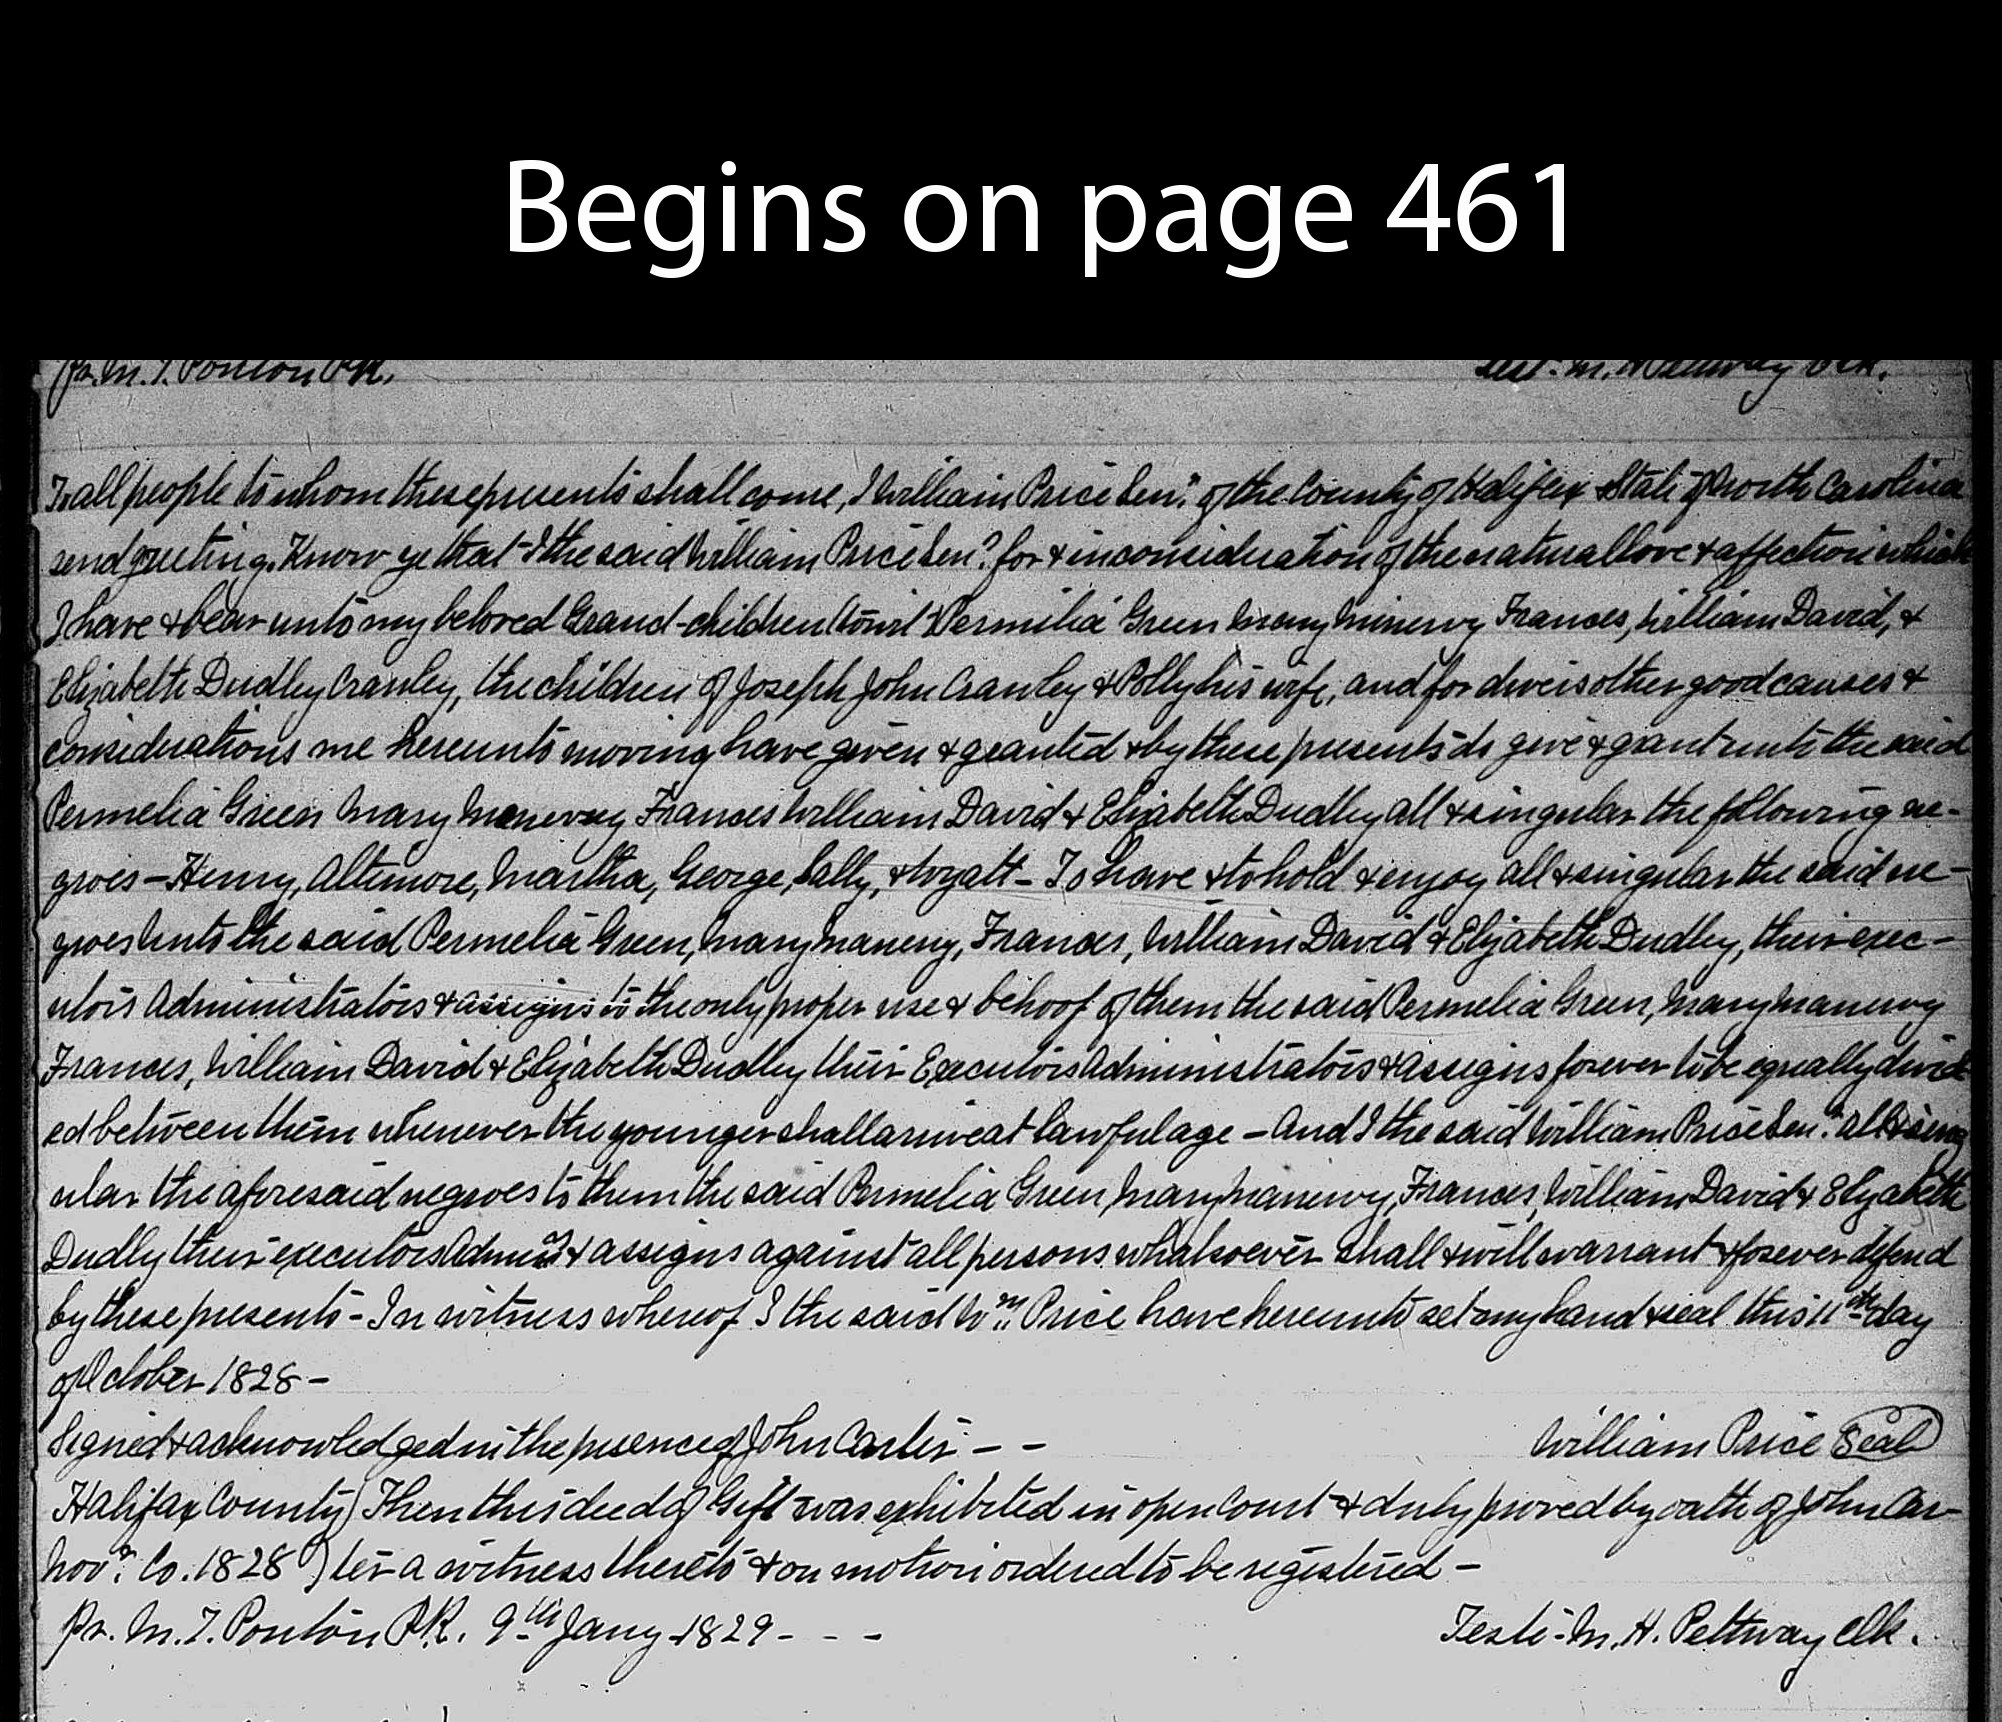 Begins on page 461
pr. M. T. Ponton P.R.
Test. M. H Pettway Clk.
To all people to whom these presents shall come, I William Price Senr. of the County of Halifax & State of North Carolina
send greeting. Know ye that I the said William Price Senr. for & in consideration of the natural love & affection which
I have & bear unto my beloved Grand-children (towit Permilia Green Mary Minervy Frances, William David, &
Elizabeth Dudley Crawley, the children of Joseph John Crawley & Polly his wife, and for divers other good causes &
considerations me hereunto moving have given & granted & by these presents do give & grant unto the said
Permelia Green Mary Manervy Frances William David & Elizabeth Dudley all & singular the following ne-
groes - Henry, Altimore, Martha, George, Sally, & Wyatt - To have & to hold & enjoy all & singular the said ne-
groes unto the said Permelia Green, Mary Manervy, Frances, William David & Elizabeth Dudley, their exec-
utors Administrators & assigns to the only proper use & behoof of them the said Permelia Green, Mary Manervy
Frances, William David & Elizabeth Dudley their Executors Administrators & assigns forever to be equally divid
ed between them whenever the younger shall arrive at lawful age - And I the said William Price Senr. all & sing
ular the aforesaid negroes to them the said Permelia Green, Mary Manervy, Frances, William David & Elizabeth
Dudly their executors Admrs. & assigns against all persons whatsoever shall & will warrant & forever defend
by these presents - In witness whereof I the said Wm. Price have hereunto set my hand & seal this 11th day
of October 1828 -
Signed & acknowledged in the presence of John Carter - -
William Price Seal
Halifax County ) Then this deed of Gift was exhibited in open Court & duly proved by oath of John Car-
Novr. Co. 1828 ) ter a witness thereto & on motion ordered to be registered -
pr. M. T. Ponton P.R. 9th Jany 1829 - - -
Teste. M. H. Pettway Clk.